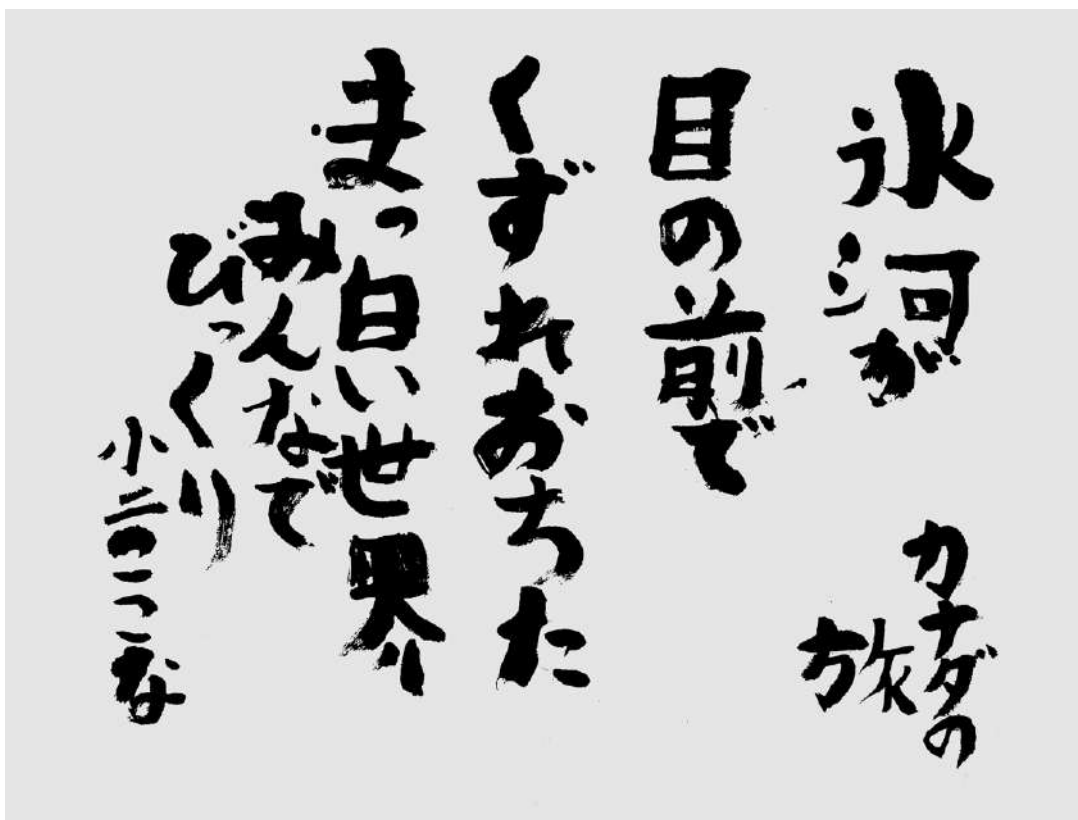 カナダの
旅
氷河が
目の前で
くずれおちた
まっ白い世界
みんなで
びっくり
小二